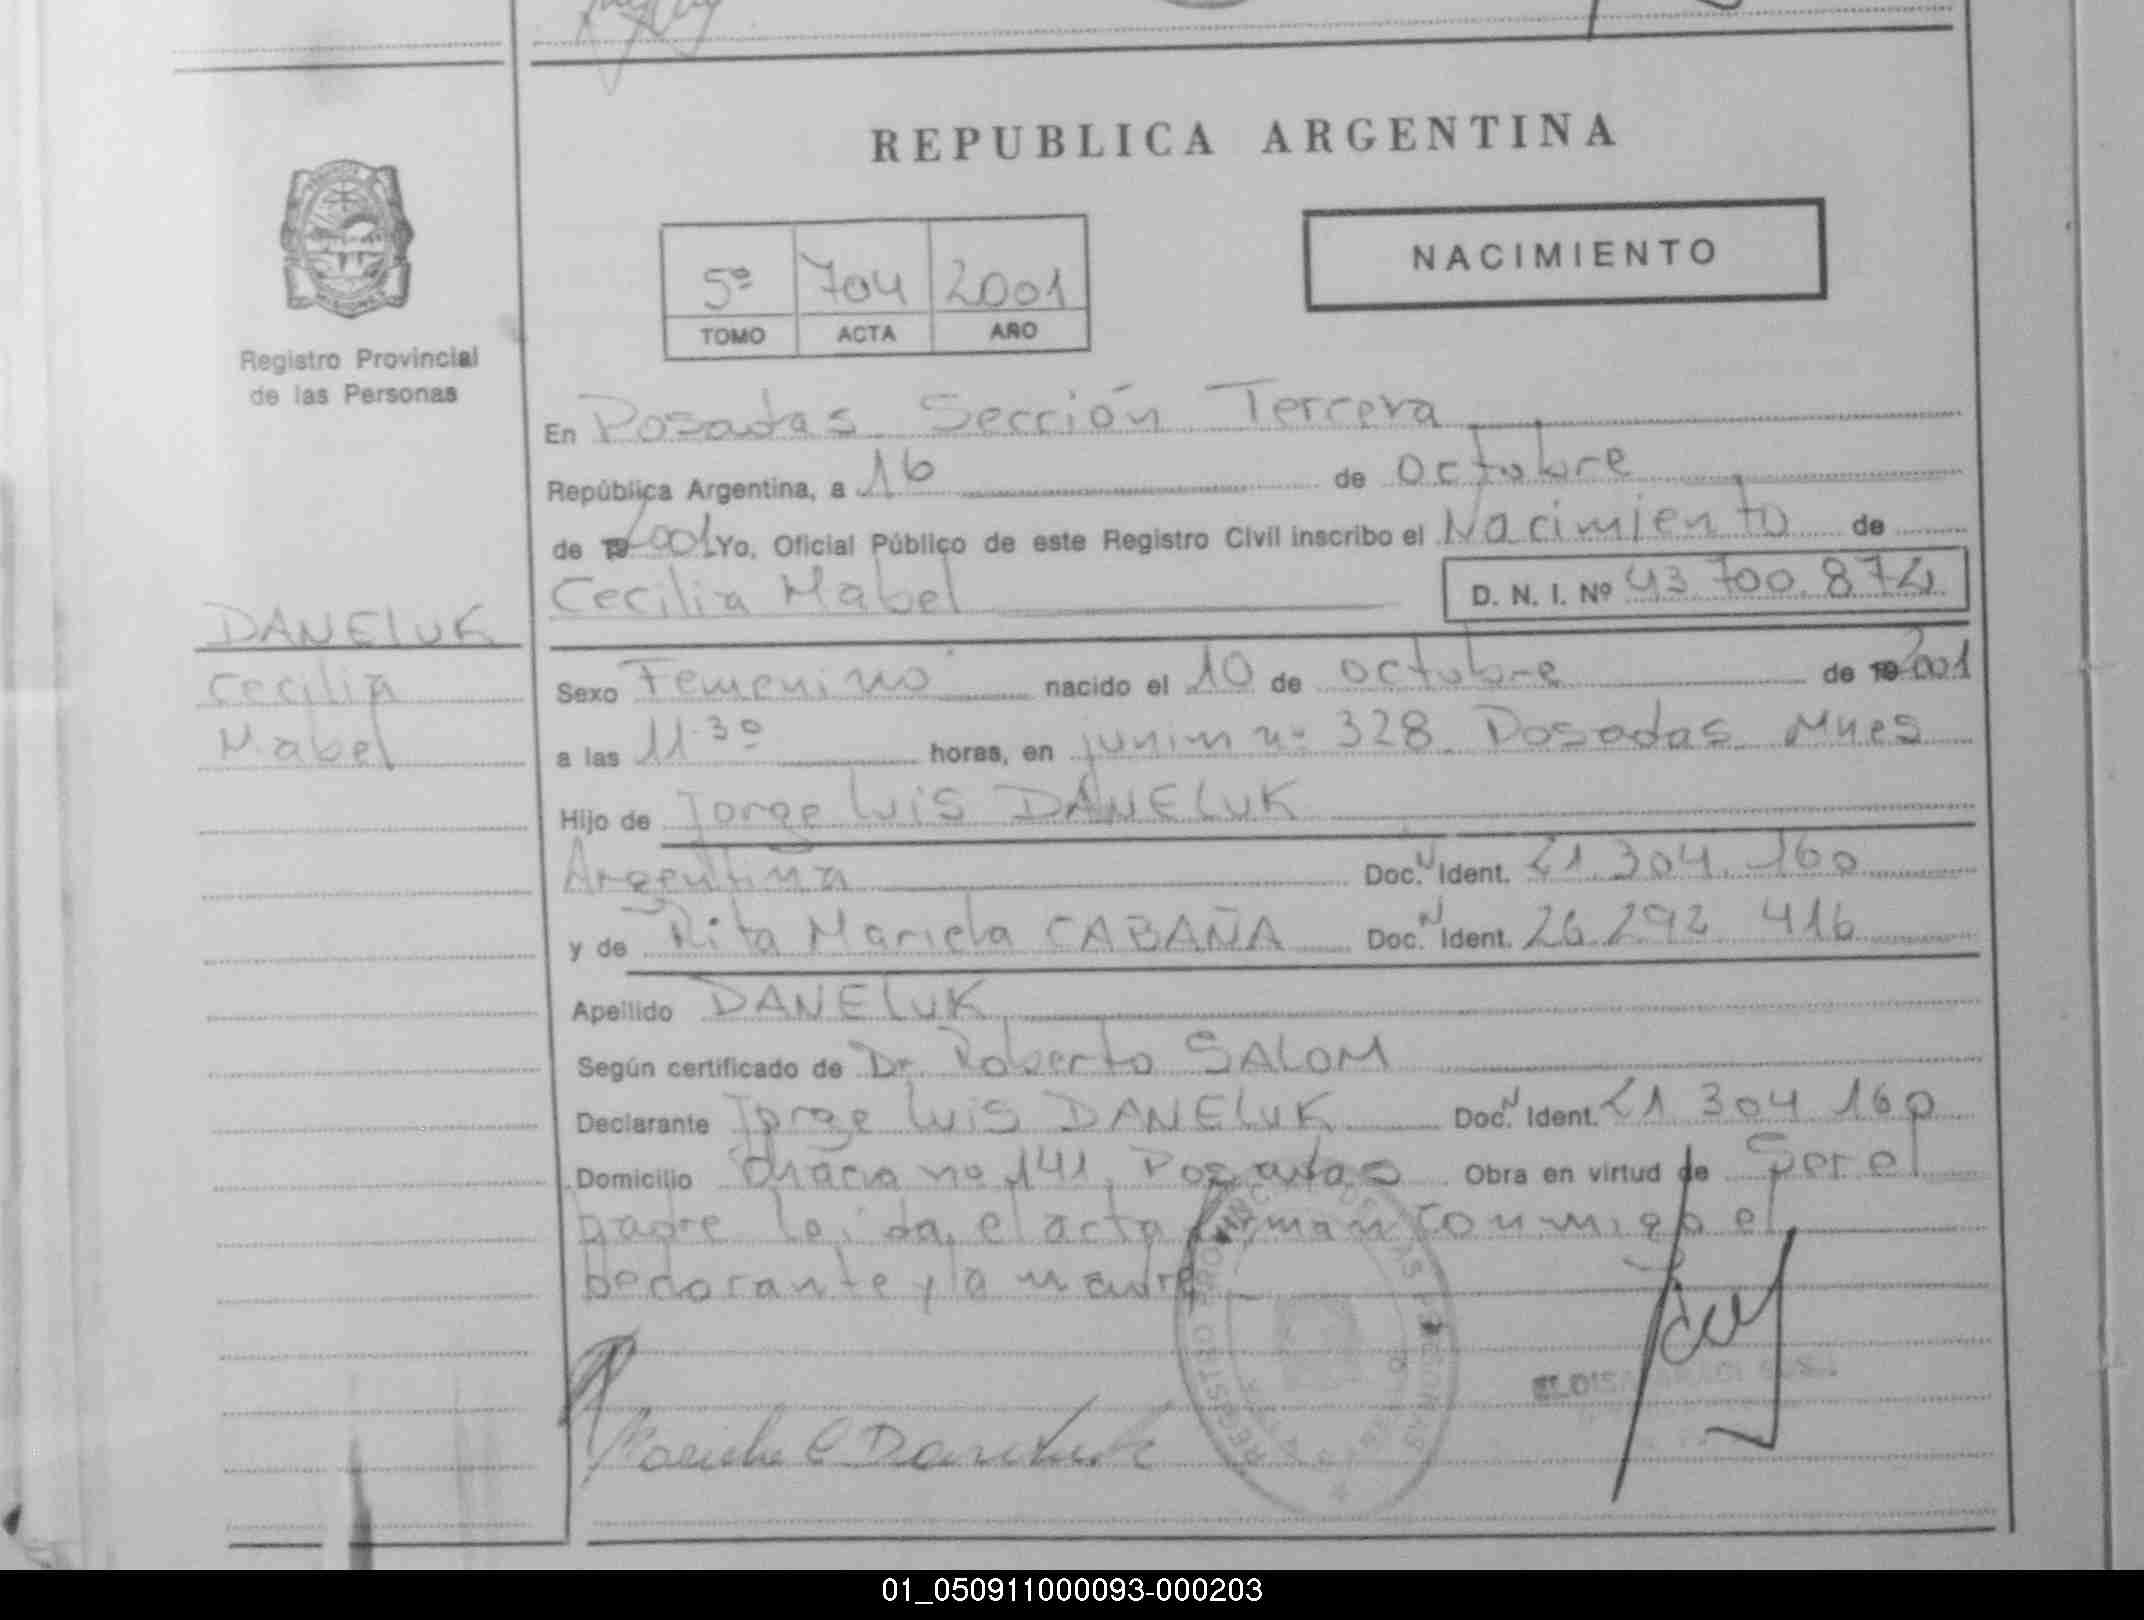 REPUBLICA ARGENTINA
NACIMIENTO
5º 704 2001
TOMO ACTA AÑO
Registro Provincial
de las Personas
En Posadas Sección Tercera
República Argentina, a 16 de octubre
de 2001 Yo, Oficial Público de este Registro Civil inscribo el Nacimiento de
Cecilia Mabel D. N. I. Nº 43 700 874
DANELUK
Cecilia
Mabel
Sexo Femenino nacido el 10 de octubre de 2001
a las 11 30 horas, en junin nº 328 Posadas Mnes
Hijo de Jorge Luis DANELUK
Argentina Doc. N Ident. 21.304.160
y de Rita Mariela CABAÑA Doc. N Ident. 26 292 416
Apellido DANELUK
Según certificado de Dr. Roberto SALOM
Declarante Jorge Luis DANELUK Doc. N Ident. 21 304 160
Domicilio nº 141 Posadas Obra en virtud de Ser el
padre leida el acta firman conmigo el
y la madre
REGISTRO PROVINCIAL DE LAS PERSONAS
01_050911000093-000203